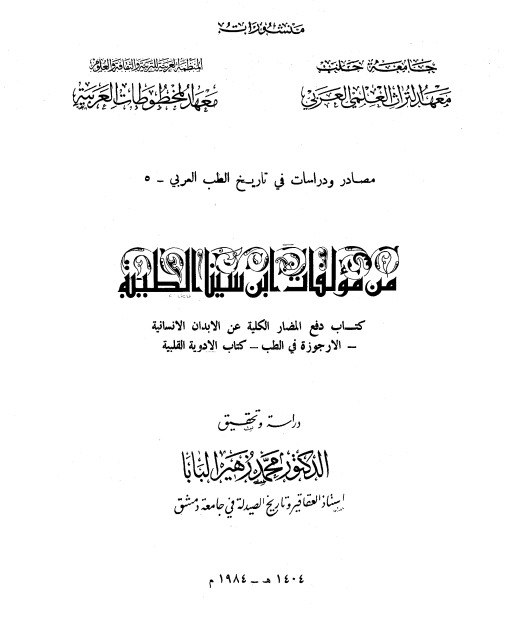 منشورات
جامعة حلب
معهد التراث العلمي العربي
المنظمة العربية للتربية والثقافة والعلوم
معهد المخطوطات العربية
مصادر ودراسات في تاريخ الطب العربي - ٥
من مؤلفات ابن سينا الطبية
كتاب دفع المضار الكلية عن الابدان الانسانية
– الارجوزة في الطب – كتاب الادوية القلبية
دراسة وتحقيق
الدكتور محمد زهير البابا
استاذ العقاقير وتاريخ الصيدلة في جامعة دمشق
١٤٠٤ هـ – ١٩٨٤ م